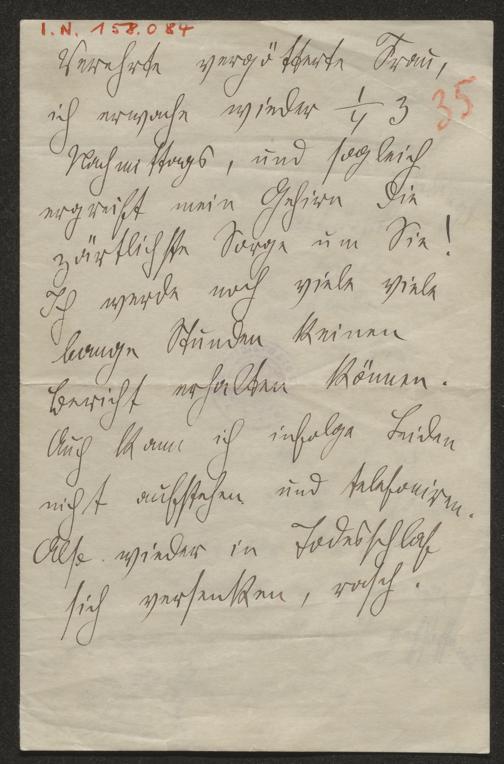 I.N. 158.084
Verehrte vergötterte Frau,
35
ich erwache wieder 1/4 3
Nachmittags, und sogleich
ergreift mein Gehirn die
zärtlichste Sorge um Sie!
Ich werde noch viele viele
bange Stunden keinen
Bericht erhalten können.
Auch kann ich infolge Leiden
nicht aufstehen und telefoniren.
Also wieder in Todesschlaf
sich versenken, rasch.